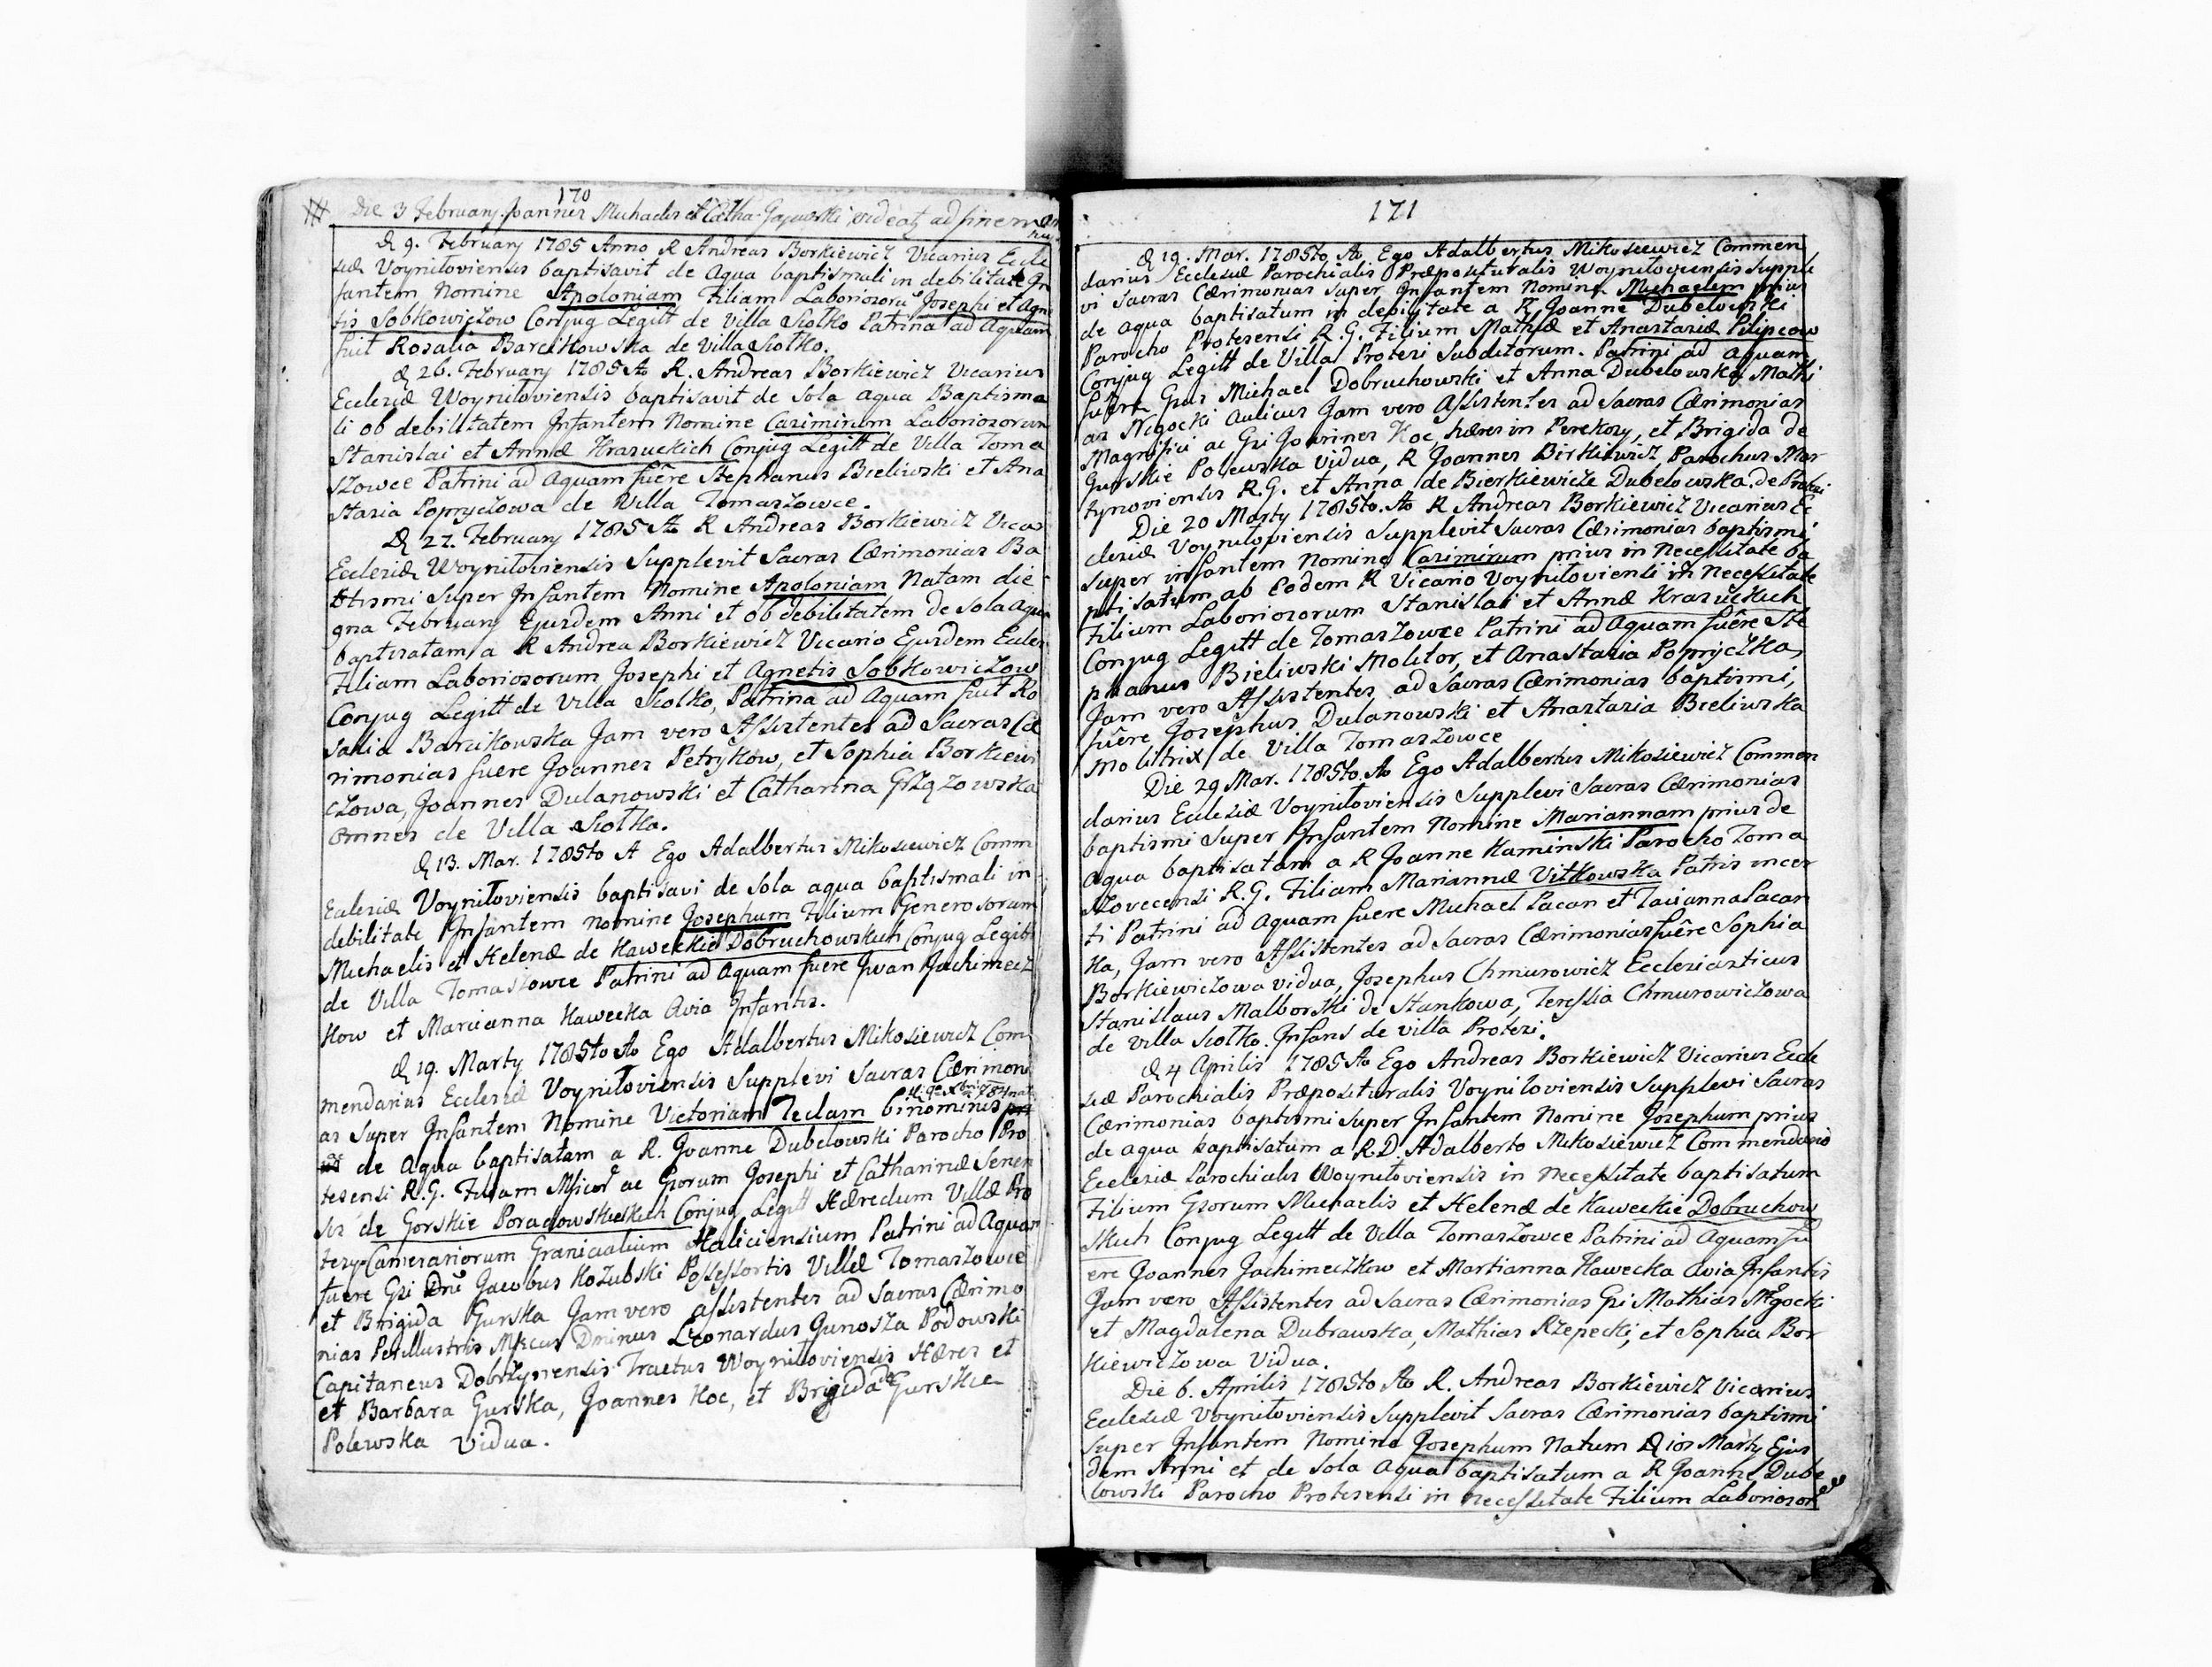 170
Die 3 February Joannes Michaelis et Catha Gajewski videatz ad finem
D 9. February 1785 Anno R Andreas Borkiewicz Vicarius Eccle
siæ Voyniloviensis baptisavit de Aqua baptismali in debilitate In
fantem Nomine Apoloniam Filiam Laboriosorū Josephi et Agne
tis Sobkowiczow Conjug Legitt de Villa Siolko Patrina ad Aquam
fuit Rosalia Barcikowska de Villa Siolko.
D 26. February 1785 Ao R. Andreas Borkiewicz Vicarius
Ecclesiæ Woyniloviensis baptisavit de Sola aqua Baptisma
li ob debilitatem Infantem Nomine Casimirum Laboriosorum
Stanislai et Annæ Krasuckich Conjug Legitt de Villa Toma
szowce Patrini ad Aquam fuêre Stephanus Bieliwski et Ana
stasia Popryczowa de Villa Tomaszowce.
D 27. February 1785 Ao R Andreas Borkiewicz Vicar
Ecclesiæ Woyniloviensis Supplevit Sacras Cærimonias Ba
ptismi Super Infantem Nomine Apoloniam Natam die
9na February Ejusdem Anni et ob debilitatem de Sola Aqua
baptisatam a R Andrea Borkiewicz Vicario Ejusdem Eccles
Filiam Laboriosorum Josephi et Agnetis Sobkowiczow
Conjug Legitt de Villa Siolko, Patrina ad Aquam fuit Ro
salia Barcikowska Jam vero Assistentes ad Sacras Cæ
rimonias fuere Joannes Petrykow, et Sophia Borkiewi
czowa, Joannes Dulanowski et Catharina
omnes de Villa Siolka.
D 13. Mar. 1785to A Ego Adalbertus Mikosiewicz Comm
Ecclesiæ Voyniloviensis baptisavi de Sola aqua baptismali in
debilitate Infantem Nomine Josephum Filium Generosorum
Michaelis et Helenæ de Kaweckie Dobruchowskich Conjug Legitt
de Villa Tomaszowce Patrini ad Aquam fuere Iwan Jachimecz
kow et Marianna Kawecka Avia Infantis.
D 19. Marty 1785to Ao Ego Adalbertus Mikosiewicz Com
mendarius Ecclesiæ Voyniloviensis Supplevi Sacras Cærimoni
as Super Infantem Nomine Victoriam Teclam binominis
de Aqua baptisatam a R. Joanne Dubelowski Parocho Pro
tesensi R.G. Filiam Mficor ac Grorum Josephi et Catharinæ Senen
sis de Gorskie Poradowskich Conjug Legitt Hæredum Villæ Pro
tesy Camerariorum Granicialium Haliciensium Patrini ad Aquam
fuere Gsi Dni Jacobus Kozubski Possessortis Villæ Tomaszowce
et Brigida Gurska Jam vero assistentes ad Sacras Cærimo
nias Perillustris Mficus Dminus Leonardus Gunosza Podowski
Capitaneus Dobrzynensis Tractus Woyniloviensis Hæres et
et Barbara Gurska, Joannes Koc, et Brigida de Gurskie
Polewska Vidua.
171
D 19. Mar. 1785to Ao Ego Adalbertus Mikosiewicz Commen
darius Ecclesiæ Parochialis Præpositutalis Woyniloviensis Supple
vi Sacras Cærimonias Super Infantem Nomine Michaelem prius
de aqua baptisatum in debilitate a R Joanne Dubelowski
Parocho Protesensi R.G. Filium Mathiæ et Anastasiæ Pilipcow
Conjug Legitt de Villa Protesi Subditorum. Patrini ad Aquam
fuêre Gsus Michael Dobruchowski et Anna Dubelowska, Mathi
as Nigocki Aulicus Jam vero Assistentes ad Sacras Cærimonias
Magnifici ac Gsi Joannes Koc hæres in Perekosy, et Brigida de
Gurskie Polewska Vidua, R Joannes Birkiewicz Parochus Mar
tynoviensis R.G. et Anna de Bierkiewicze Dubelowska de Protesi
Die 20 Marty 1785to. Ao R Andreas Borkiewicz Vicarius Ec
clesiæ Voyniloviensis Supplevit Sacras Cærimonias baptismi
Super infantem Nomine Casimirum prius in Necessitate ba
ptisatum ab Eodem R Vicario Voyniloviensi in Necessitate
Filium Laboriosorum Stanislai et Annæ Krasuckich
Conjug Legitt de Tomaszowce Patrini ad Aquam fuêre Ste
phanus Bieliwski Molitor, et Anastasia Popryczka,
Jam vero Assistentes ad Sacras Cærimonias baptismi,
fuêre Josephus Dulanowski et Anastasia Bieliwska
Molitrix de Villa Tomaszowce
Die 29 Mar. 1785to. Ao Ego Adalbertus Mikosiewicz Commen
darius Ecclesiæ Voyniloviensis Supplevi Sacras Cærimonias
baptismi Super Infantem Nomine Mariannam prius de
Aqua baptisatam a R Joanne Kaminski Parocho Toma
szovecensi R.G. Filiam Mariannæ Vitkowska Patris incer
ti Patrini ad Aquam fuere Michael Pacan et Tacianna Pacan
ka, Jam vero Assistentes ad Sacras Cærimonias fuêre Sophia
Borkiewiczowa vidua, Josephus Chmurowicz Ecclesiasticus
Stanislaus Malborski de Stankowa, Teressia Chmurowiczowa
de Villa Siolko. Infans de villa Protesi.
D 4 Aprilis 1785 Ao Ego Andreas Borkiewicz Vicarius Eccle
siæ Parochialis Præposituralis Voyniloviensis Supplevi Sacras
Cærimonias baptismi Super Infantem Nomine Josephum prius
de aqua baptisatum a R.D. Adalberto Mikosiewicz Commendario
Ecclesiæ Parochialis Woyniloviensis in Necessitate baptisatum
Filium Grorum Michaelis et Helenæ de Kaweckie Dobruchow
skich Conjug Legitt de Villa Tomaszowce Patrini ad Aquam fu
ere Joannes Jachimeczkow et Martianna Kawecka Avia Infantis
Jam vero Assistentes ad Sacras Cærimonias Gsi Mathias Nigocki
et Magdalena Dubrawska, Mathias Rzepecki, et Sophia Bor
kiewiczowa Vidua.
Die 6. Aprilis 1785to Ao R. Andreas Borkiewicz Vicarius
Ecclesiæ Voyniloviensis Supplevit Sacras Cærimonias baptismi
Super Infantem Nomine Josephum Natum D 10a Marty Ejus
dem Anni et de Sola Aqua baptisatum a R Joanne Dube
lowski Parocho Protesensi in necessitate Filium Laborioson